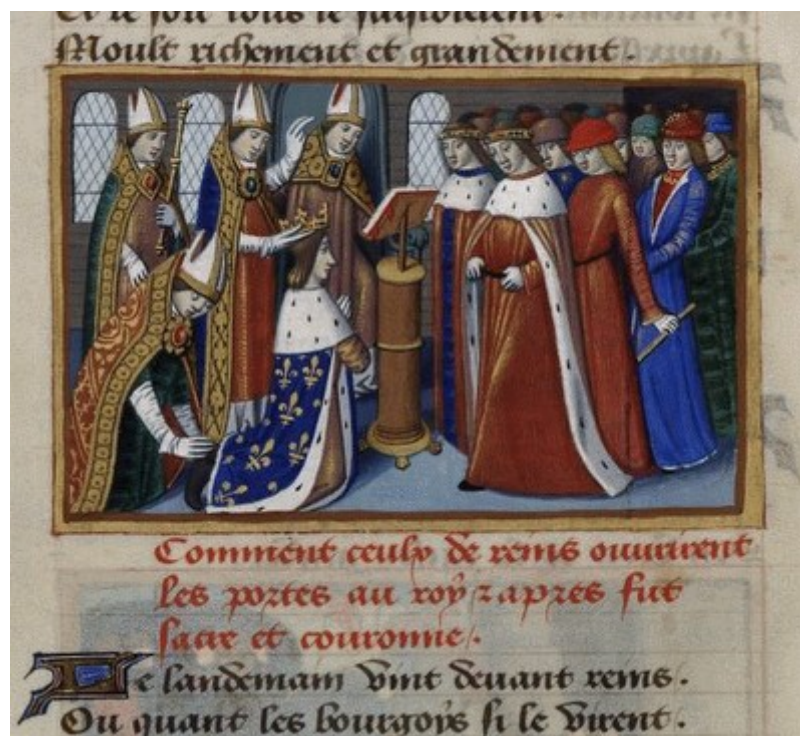 Et le soir tous le
Moult richement et grandement.
Comment ceulx de reins ouurirent
les portes au roy z apres fut
sacre et couronne.
Le landemain vint deuant reins.
Ou quant les bourgoys si le virent.